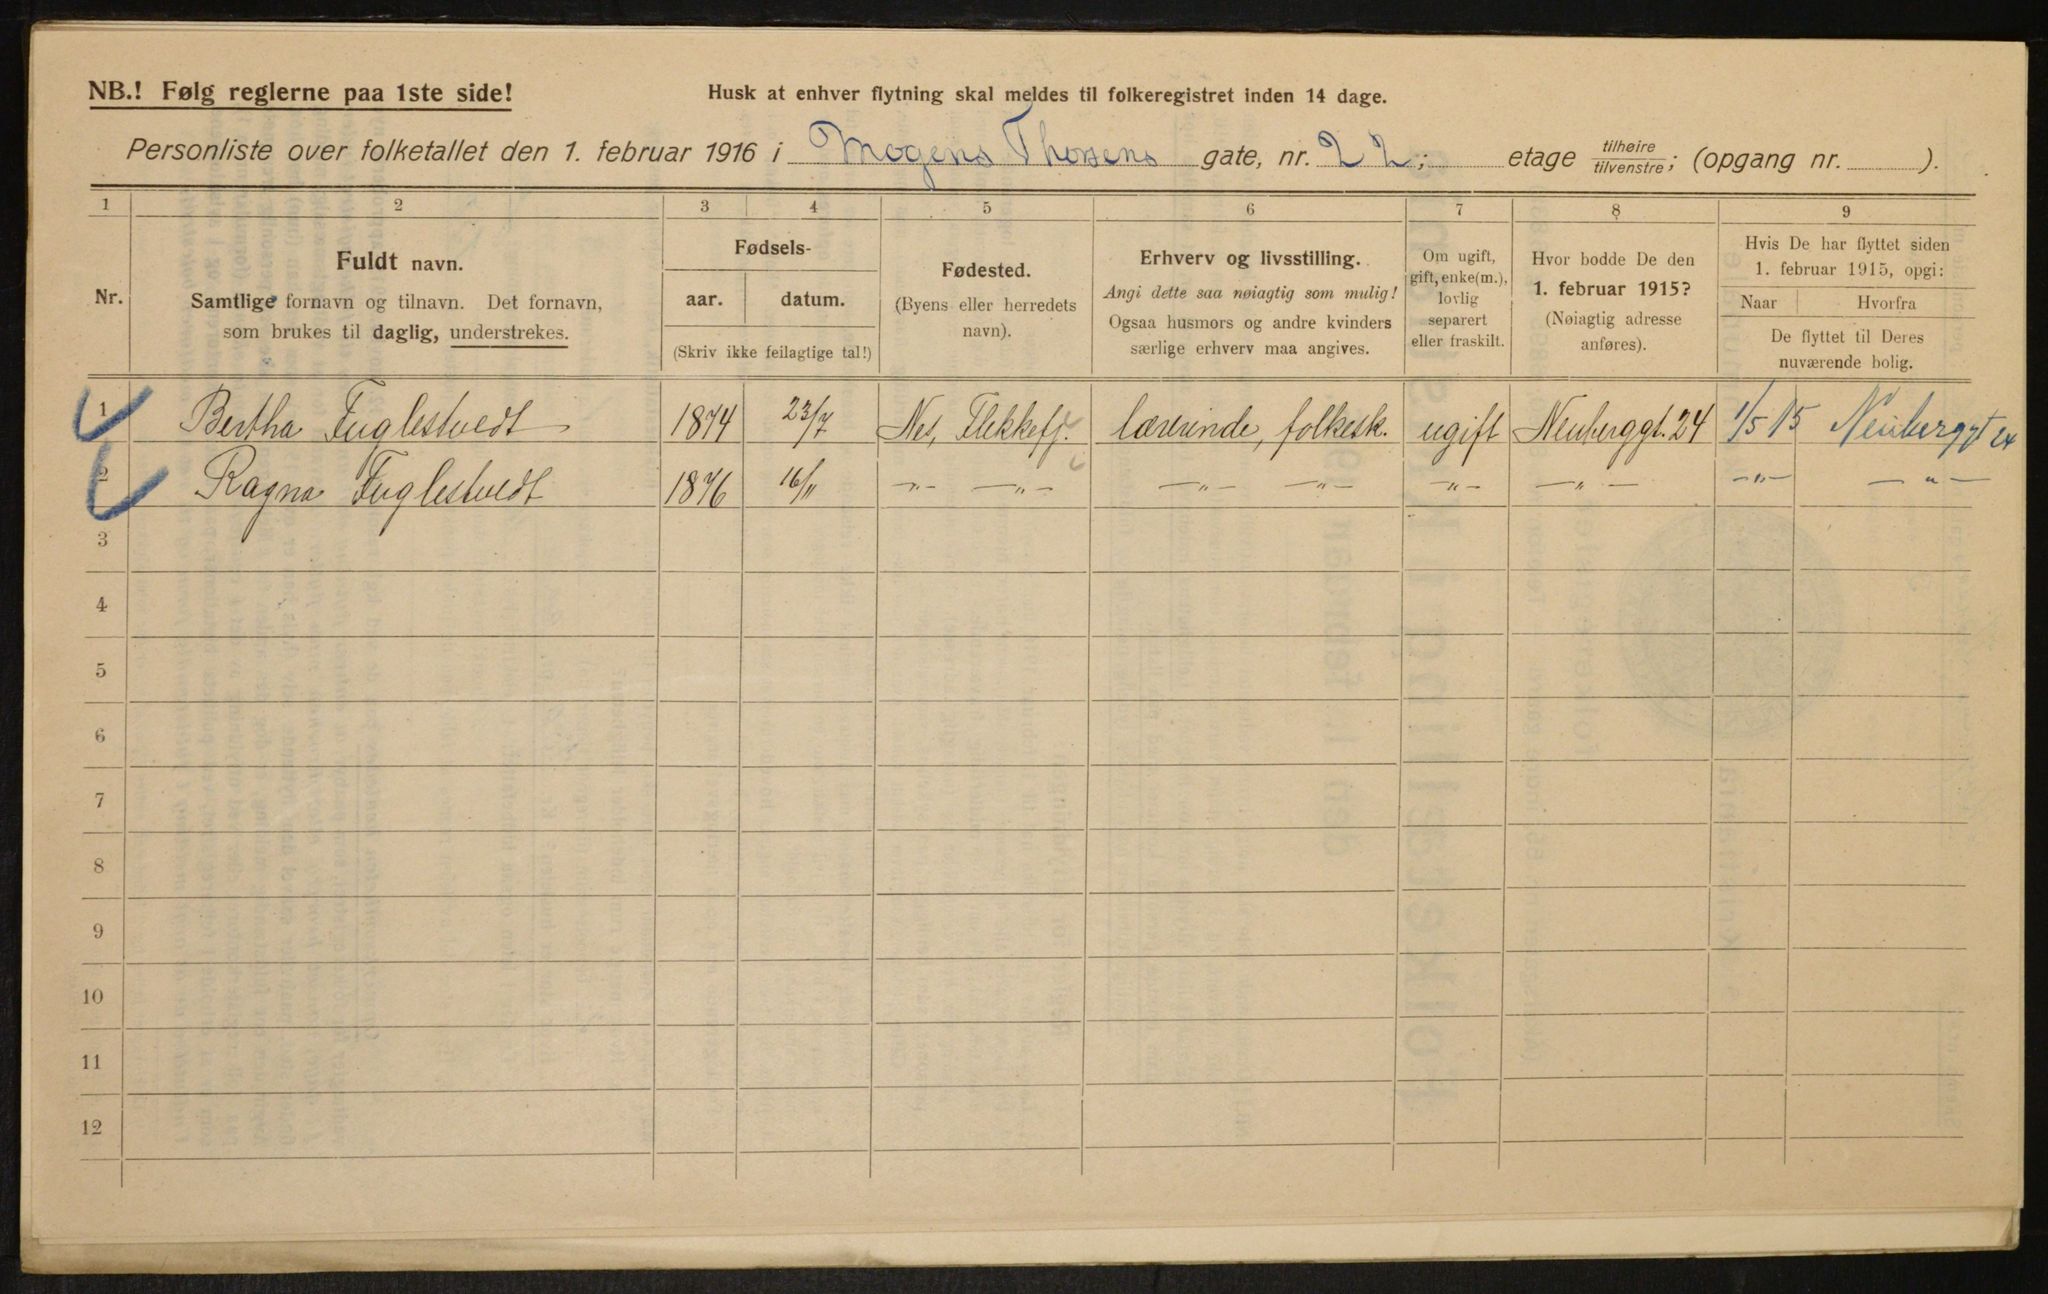 NB.! Følg reglerne paa 1ste side!
Husk at enhver flytning skal meldes til folkeregistret inden 14 dage.
Personliste over folketallet den 1. februar 1916 i Mogens Thorsens gate, nr. 22; etage tilhøire/tilvenstre; (opgang nr. ).
1 2 3 4 5 6 7 8 9
Nr.
Fuldt navn.
Samtlige fornavn og tilnavn. Det fornavn,
som brukes til daglig, understrekes.
Fødsels-
aar. datum.
(Skriv ikke feilagtige tal!)
Fødested.
(Byens eller herredets
navn).
Erhverv og livsstilling.
Angi dette saa nøiagtig som mulig!
Ogsaa husmors og andre kvinders
særlige erhverv maa angives.
Om ugift,
gift, enke(m.),
lovlig
separert
eller fraskilt.
Hvor bodde De den
1. februar 1915?
(Nøiagtig adresse
anføres).
Hvis De har flyttet siden
1. februar 1915, opgi:
Naar Hvorfra
De flyttet til Deres
nuværende bolig.
1 Bertha Fuglestvedt 1874 23/7 Nes, Flekkefj. lærerinde, folkesk. ugift Neuberggt. 24 1/5 15 Neuberggt 24
2 Ragna Fuglestvedt 1876 16/11 —„— —„— —„— —„— —„— —„— —„— —„—
3
4
5
6
7
8
9
10
11
12